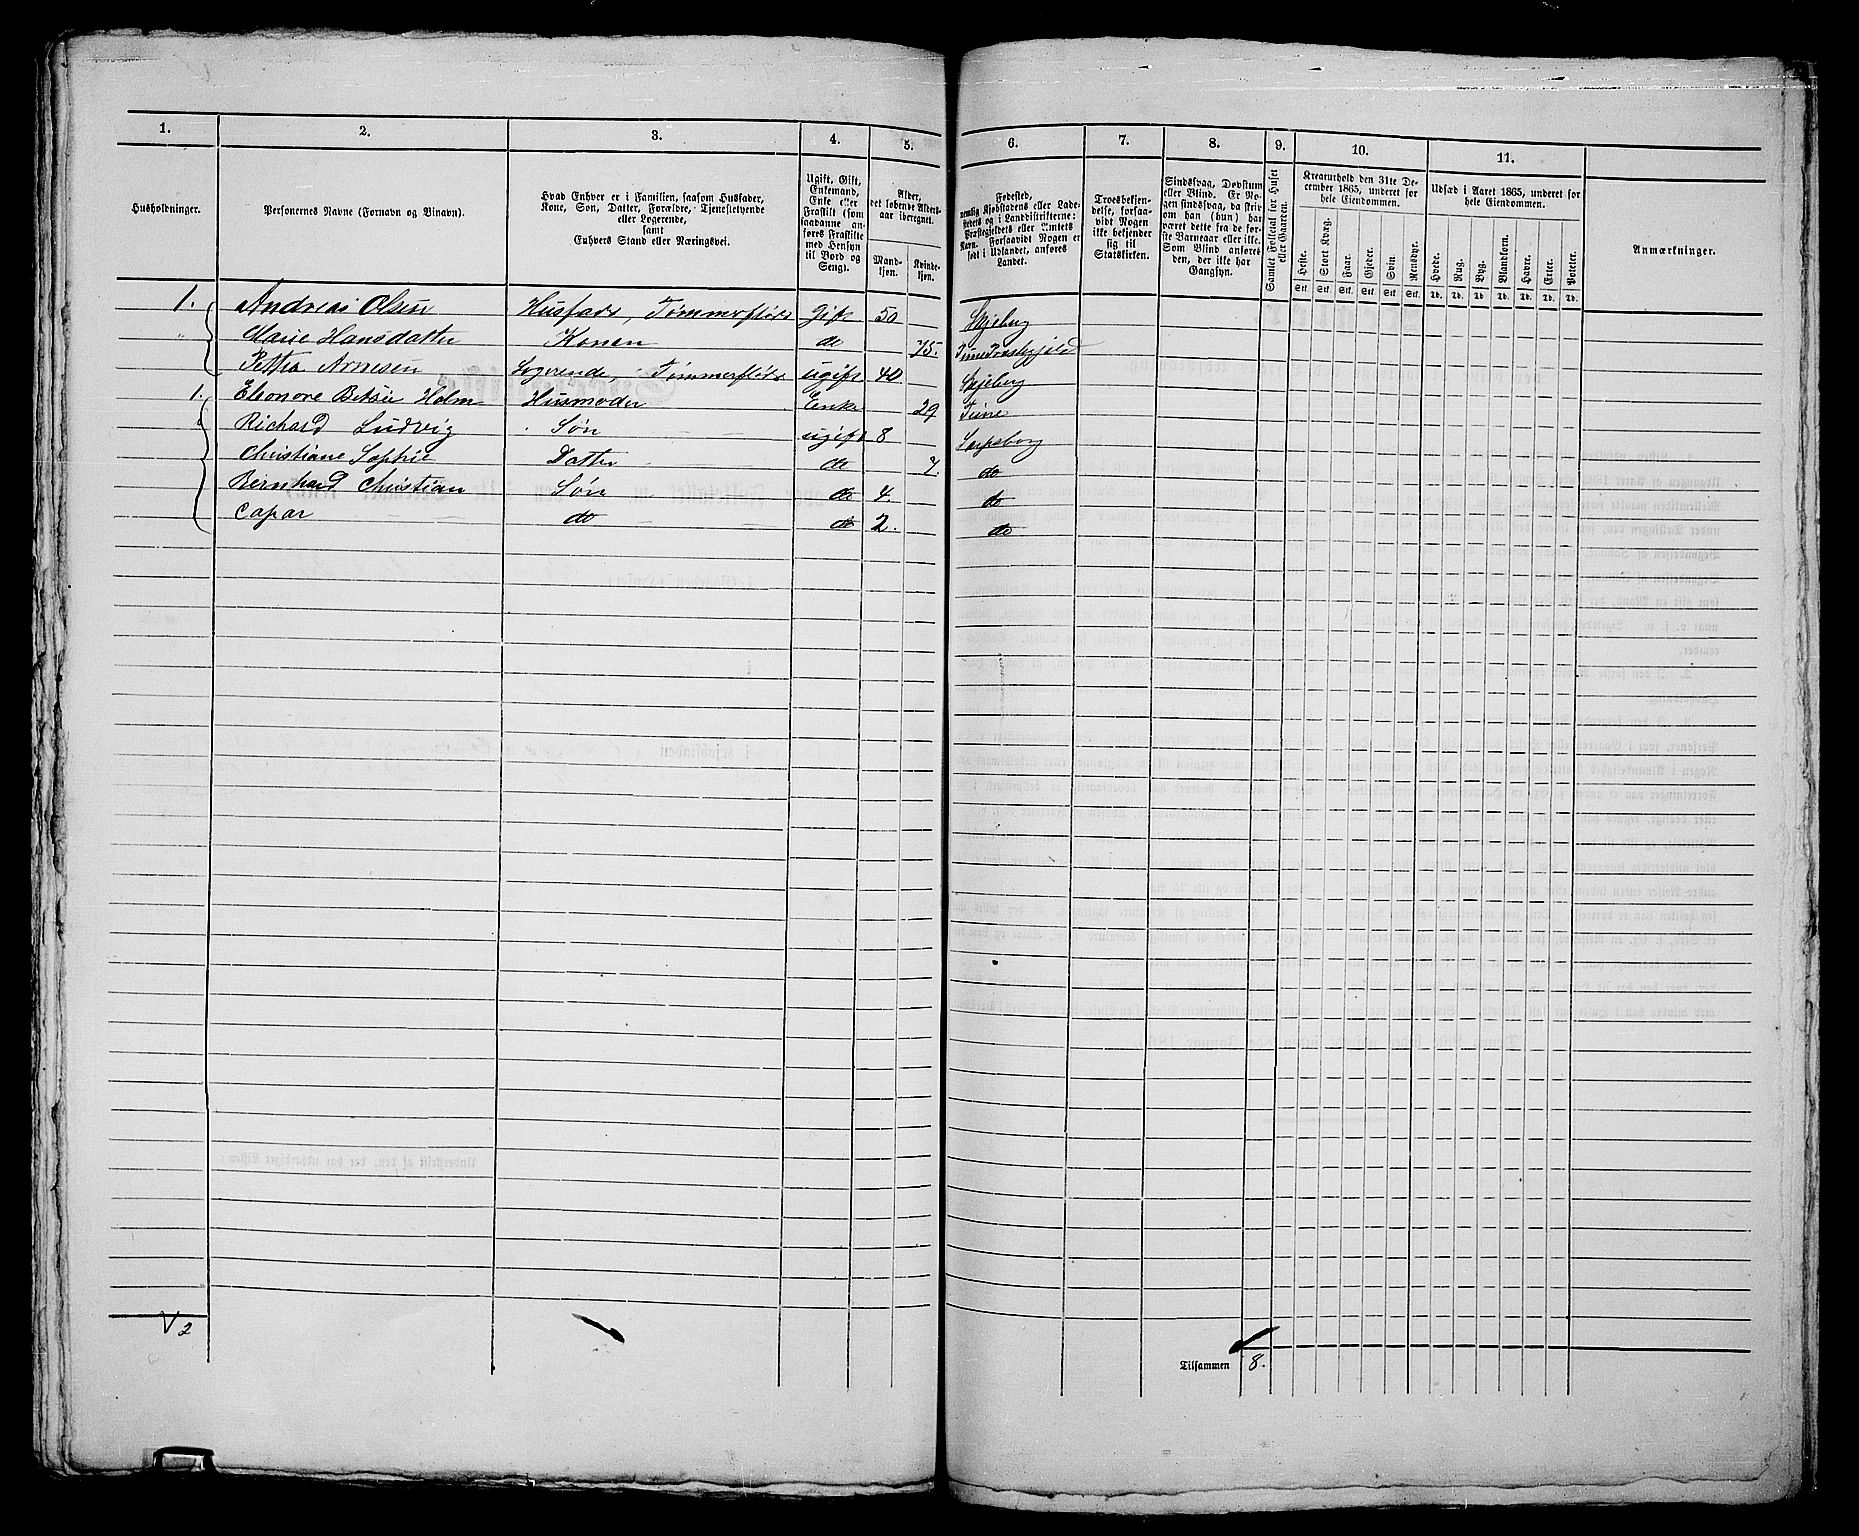 1. 2. 3. 4. 5. 6. 7. 8. 9. 10. 11.
Husholdninger.
Personernes Navne (Fornavn og Binavn).
Hvad Enhver er i Familien, saasom Husfader,
Kone, Søn, Datter, Forældre, Tjenestetyende
eller Logerende,
samt
Enhvers Stand eller Næringsvei.
Ugift, Gift,
Enkemand,
Enke eller
Fraskilt (som
saadanne an-
føres Fraskilte
med Hensyn
til Bord og
Seng).
Alder,
det løbende Alders-
aar iberegnet.
Mand-
kjøn.
Kvinde-
kjøn.
Fødested,
nemlig Kjøbstadens eller Lade-
stedets og i Landdistrikterne:
Præstegjeldets eller Amtets
Navn. Forsaavidt Nogen er
født i Udlandet, anføres
Landet.
Troesbekjen-
delse, forsaa-
vidt Nogen
ikke bekjender
sig til
Statskirken.
Sindssvag, Døvstum
eller Blind. Er No-
gen sindssvag, da skriv
om han (hun) har
været dette fra de for-
ste Barneaar eller ikke.
Som Blind anføres
den, der ikke har
Gangsyn.
Samlet Folketal for Huset
eller Gaarden.
Kreaturhold den 31te De-
cember 1865, underet for
hele Eiendommen.
Heste. Stort Kvæg. Faar. Gjeder. Svin. Rensdyr.
Stk. Stk. Stk. Stk. Stk. Stk.
Udsæd i Aaret 1865, underet for
hele Eiendommen.
Hvede. Rug. Byg. Blandkorn. Havre. Erter. Poteter.
Td. Td. Td. Td. Td. Td. Td.
Anmærkninger.
1. Andreas Olsen Husfader, Tømmerfløder Gift 50 Skjeberg
" Marie Hansdatter Konen do 75. Tune Præstegjeld
Petter Arnesen Logerende, Tømmerfløder ugift 40 Skjeberg
1. Eleonore Betsie Holm Husmoder Enke 29 Tune
Richard Ludvig Søn ugift 8 Sarpsborg
Christiane Sophie Datter do 7. do
Bernhard Christian Søn do 4. do
Casper do do 2. do
V 2
Tilsammen 8.